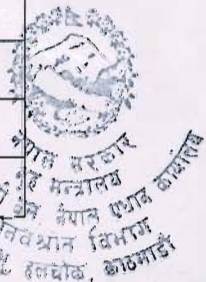 नेपाल सरकार
गृह मन्त्रालय
नेपाल प्रधान कार्यालय
विभाग
हलचोक, काठमाडौं